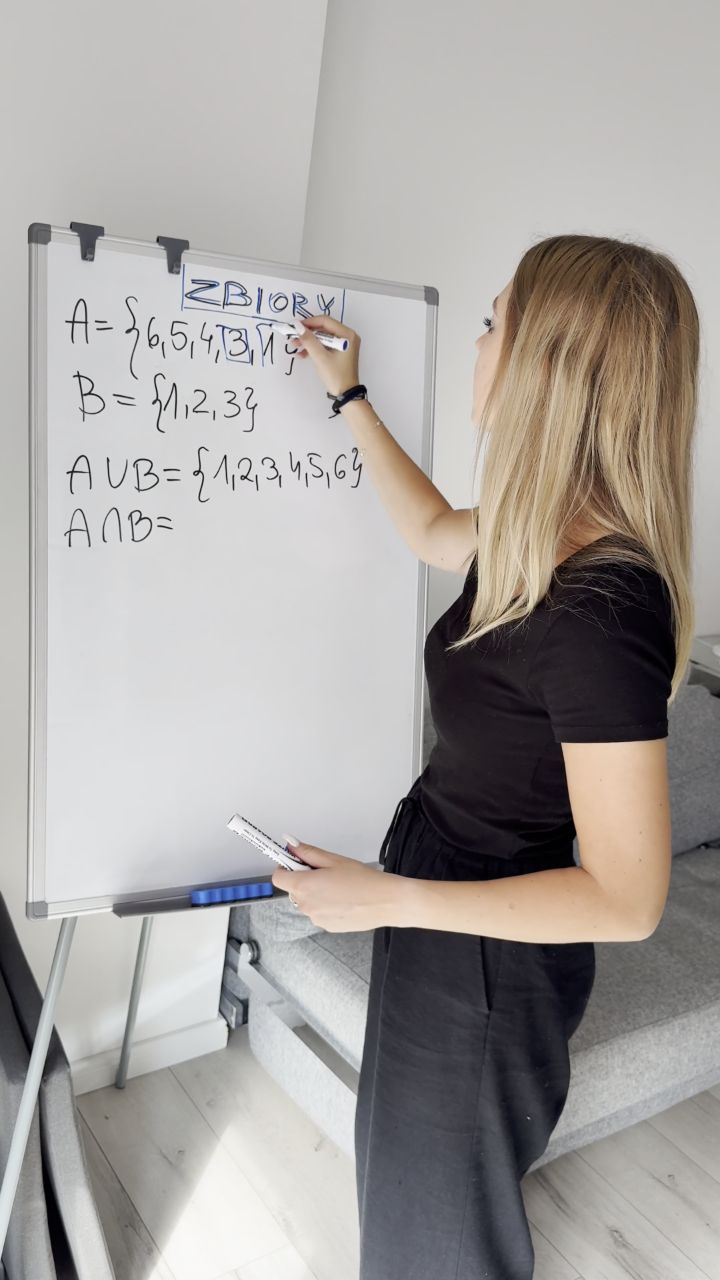 ZBIORY
A = {6,5,4,3,1}
B = {1,2,3}
A∪B = {1,2,3,4,5,6}
A∩B =